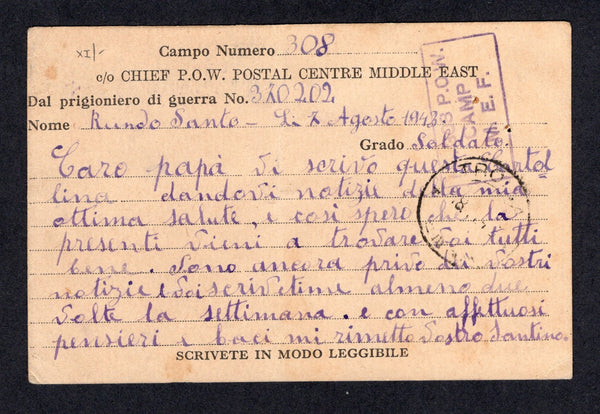 XI/-
Campo Numero 308
c/o CHIEF P.O.W. POSTAL CENTRE MIDDLE EAST
Dal prigioniero di guerra No. 320202
Nome Rundo Santo - Li 7 Agosto 1943
Grado Soldato
P.O.W.
CAMP
E.F.
Caro papà Vi scrivo questa Cartol
lina dandovi notizie della mia
ottima salute, e così spero che la
presenti vieni a trovare Voi tutti
bene. Sono ancora privo di Vostri
notizie e Voi scrivetime almeno due
Volte la settimana. e con affettuosi
pensieri e baci mi rimetto Vostro Santino.
SCRIVETE IN MODO LEGGIBILE